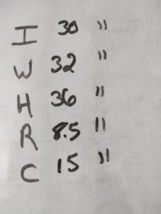 I 30 "
W 32 "
H 36 "
R 8.5 "
C 15 "